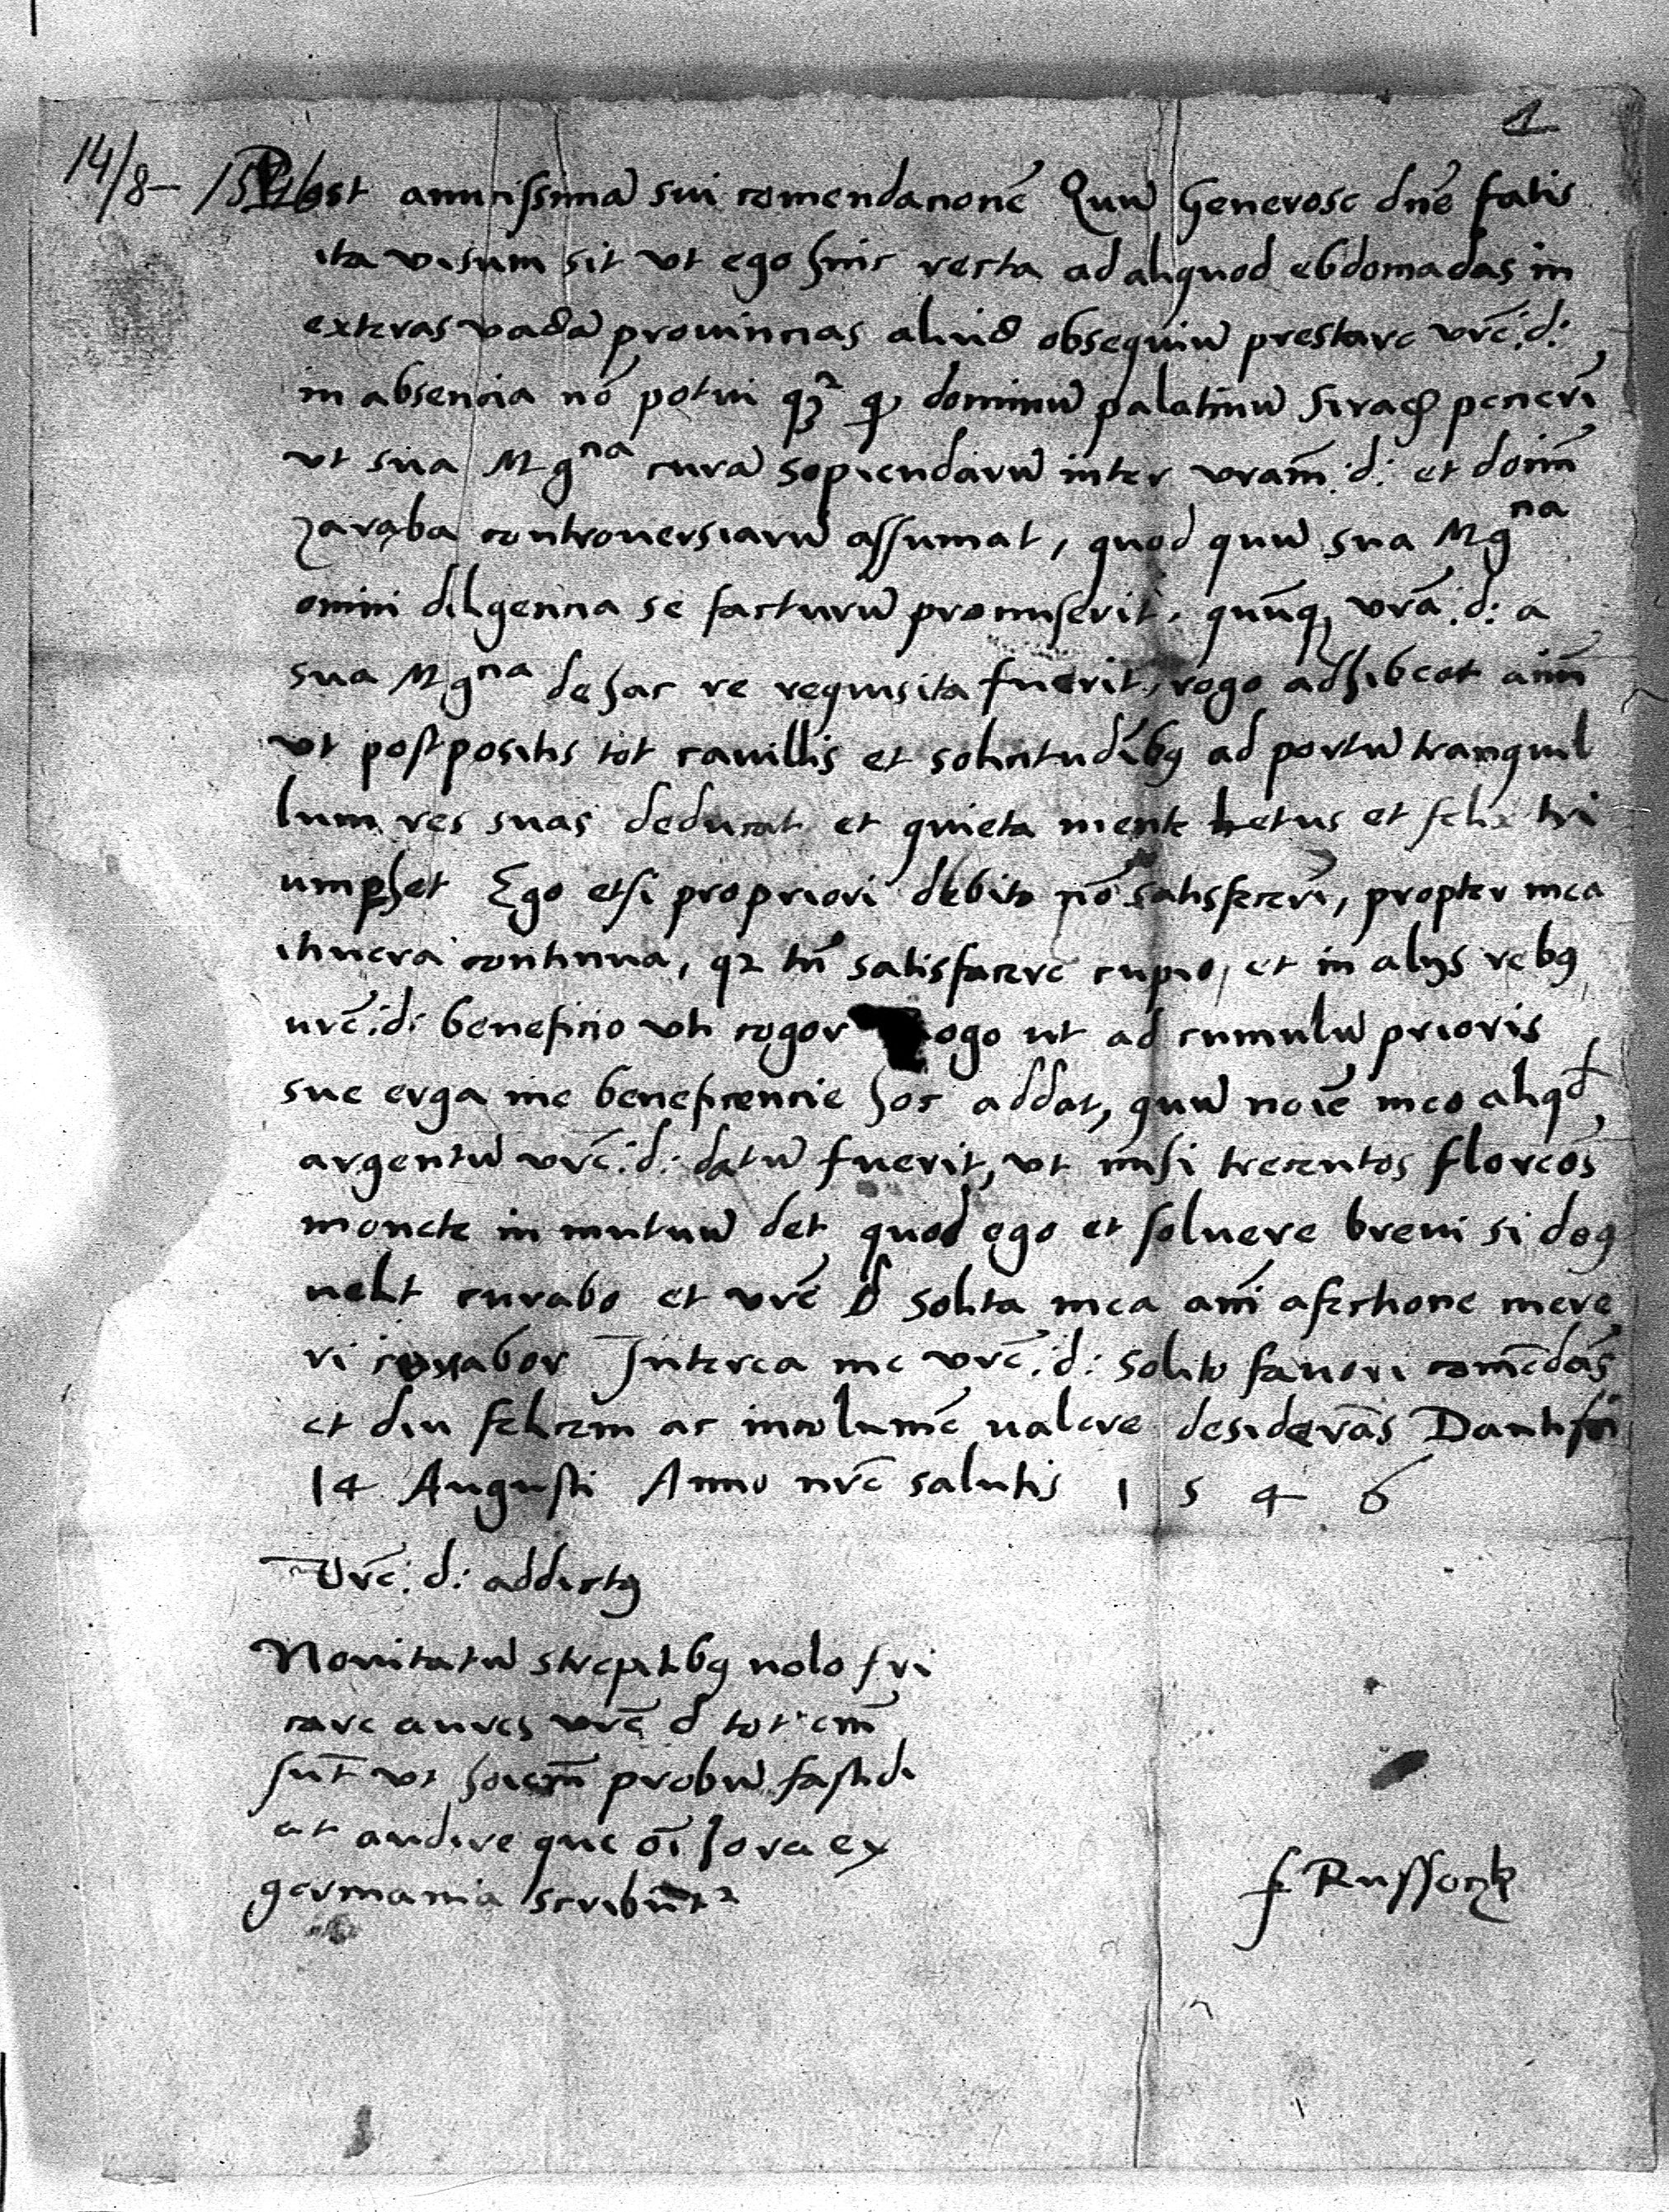 1
14/8 – 1546
Post amicissimā sui comendacionē Quū Generose dne fatis
ita visum sit vt ego hinc recta ad aliquod ebdomadas in
exteras vadā prouincias aliud obsequiū prestare vrē: d:
in absencia nō potui qȝ dominū palatinū
vt sua Mgna curā sopiendarū inter vram: d: et doīm
zaraba controuersiarū assumat, quod quū sua Mgna
omni diligencia se facturū promiserit, quūqȝ vrā: d: a
sua Mgna de hac re requisita fuerit, rogo adhibeat aīm
vt postpositis tot cauillis et solicitudībꝰ ad portū tranquil
lum res suas deducat et quieta mente letus et felix tri
umphet Ego etsi propriori debito nō satisfecerī, propter mea
itinera continua, qȝ tn̄ satisfacere cupio, et in alijs rebꝰ
urē: d: beneficio vti cogor ogo ut ad cumulū prioris
sue erga me beneficencie hoc addat, quū noīe meo aliqd
argentū vrē: d: datū fuerit, vt mihi trecentos floreos
monete in mutuū det quod ego et soluere breui si deꝰ
uelit curabo et vrē d solita mea ami afectione mere
ri conabor Interea me vrē: d: solito fauori comēdās
et diu felicem ac incolumē ualere desiderās Dantisci
14 Augusti Anno nrē salutis 1 5 4 6
Vrē: d: addictꝰ
Nouitatū strepitibꝰ nolo fri
care aures vrē d tot em̄
sūt vt hoīem probū fastidi
at audire que oī hora ex
germania scribūtꝛ
f Russoczki